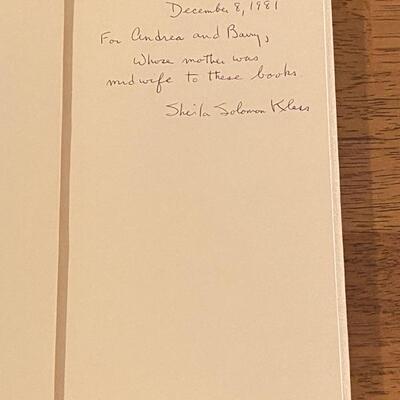 December 8, 1981
For Andrea and Barry,
Whose mother was
midwife to these books.
Sheila Solomon Klass